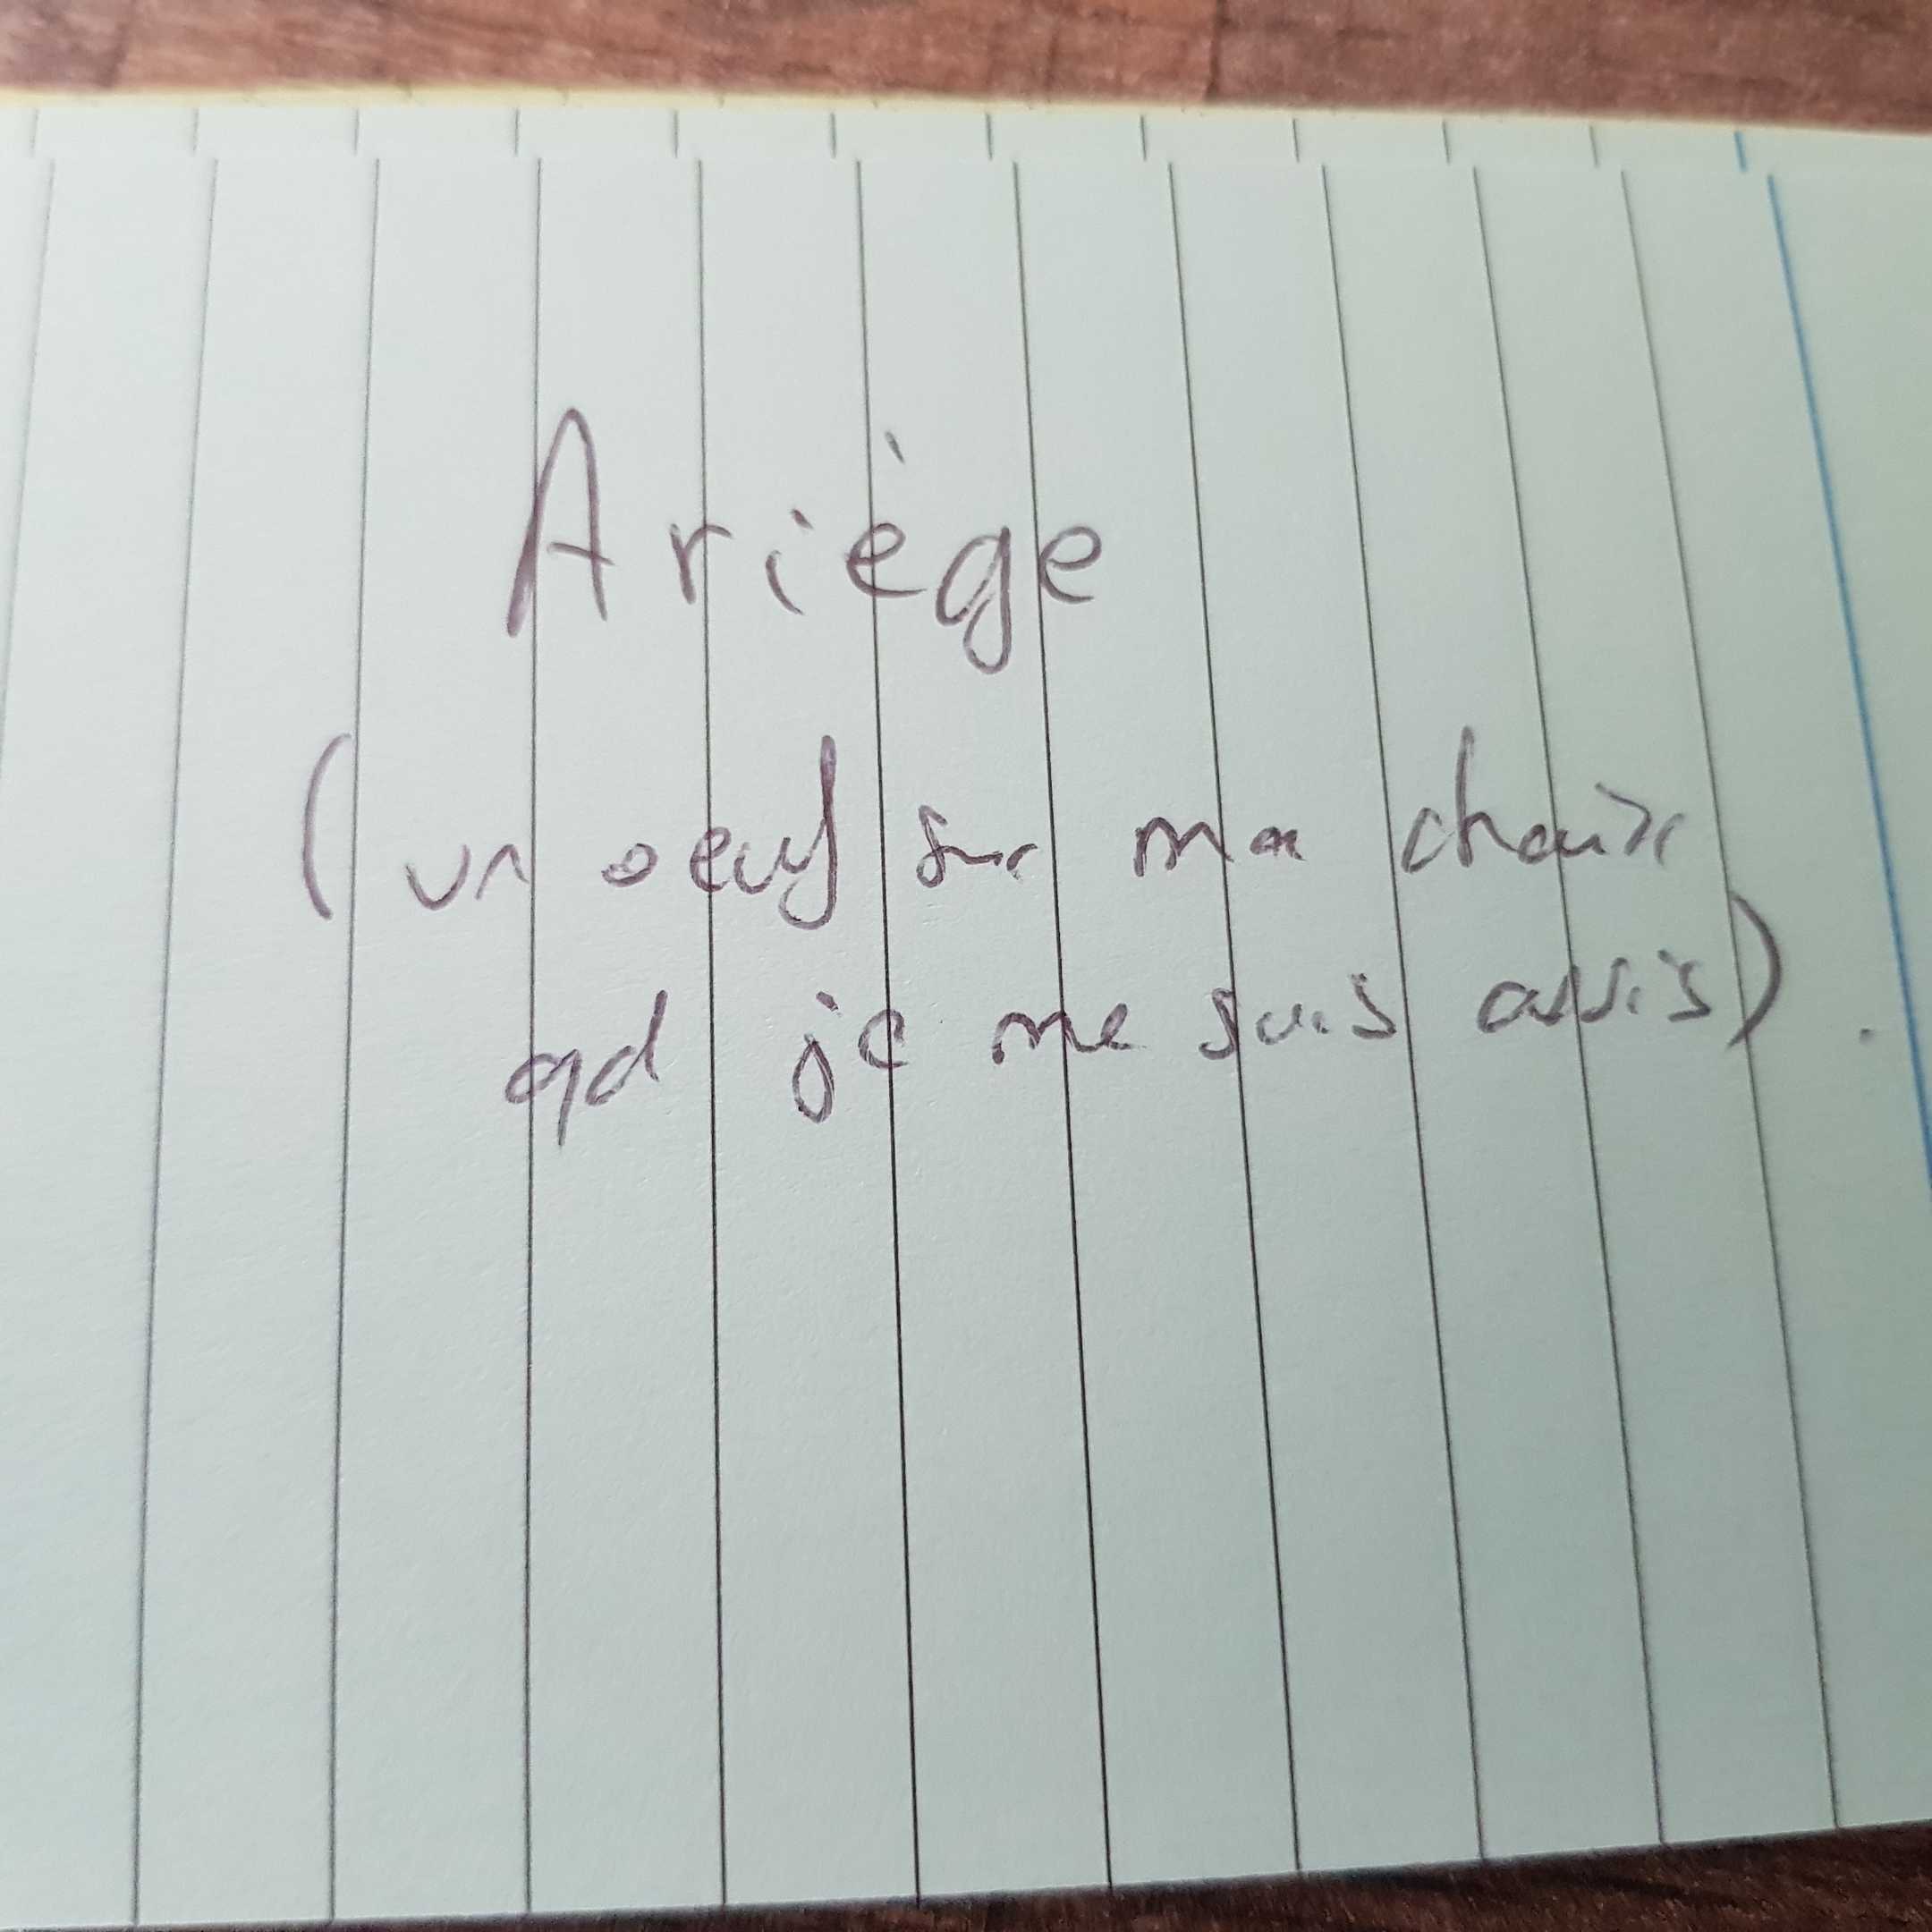 Ariège
(un oeuf sur ma chaise
qd je me suis assis).